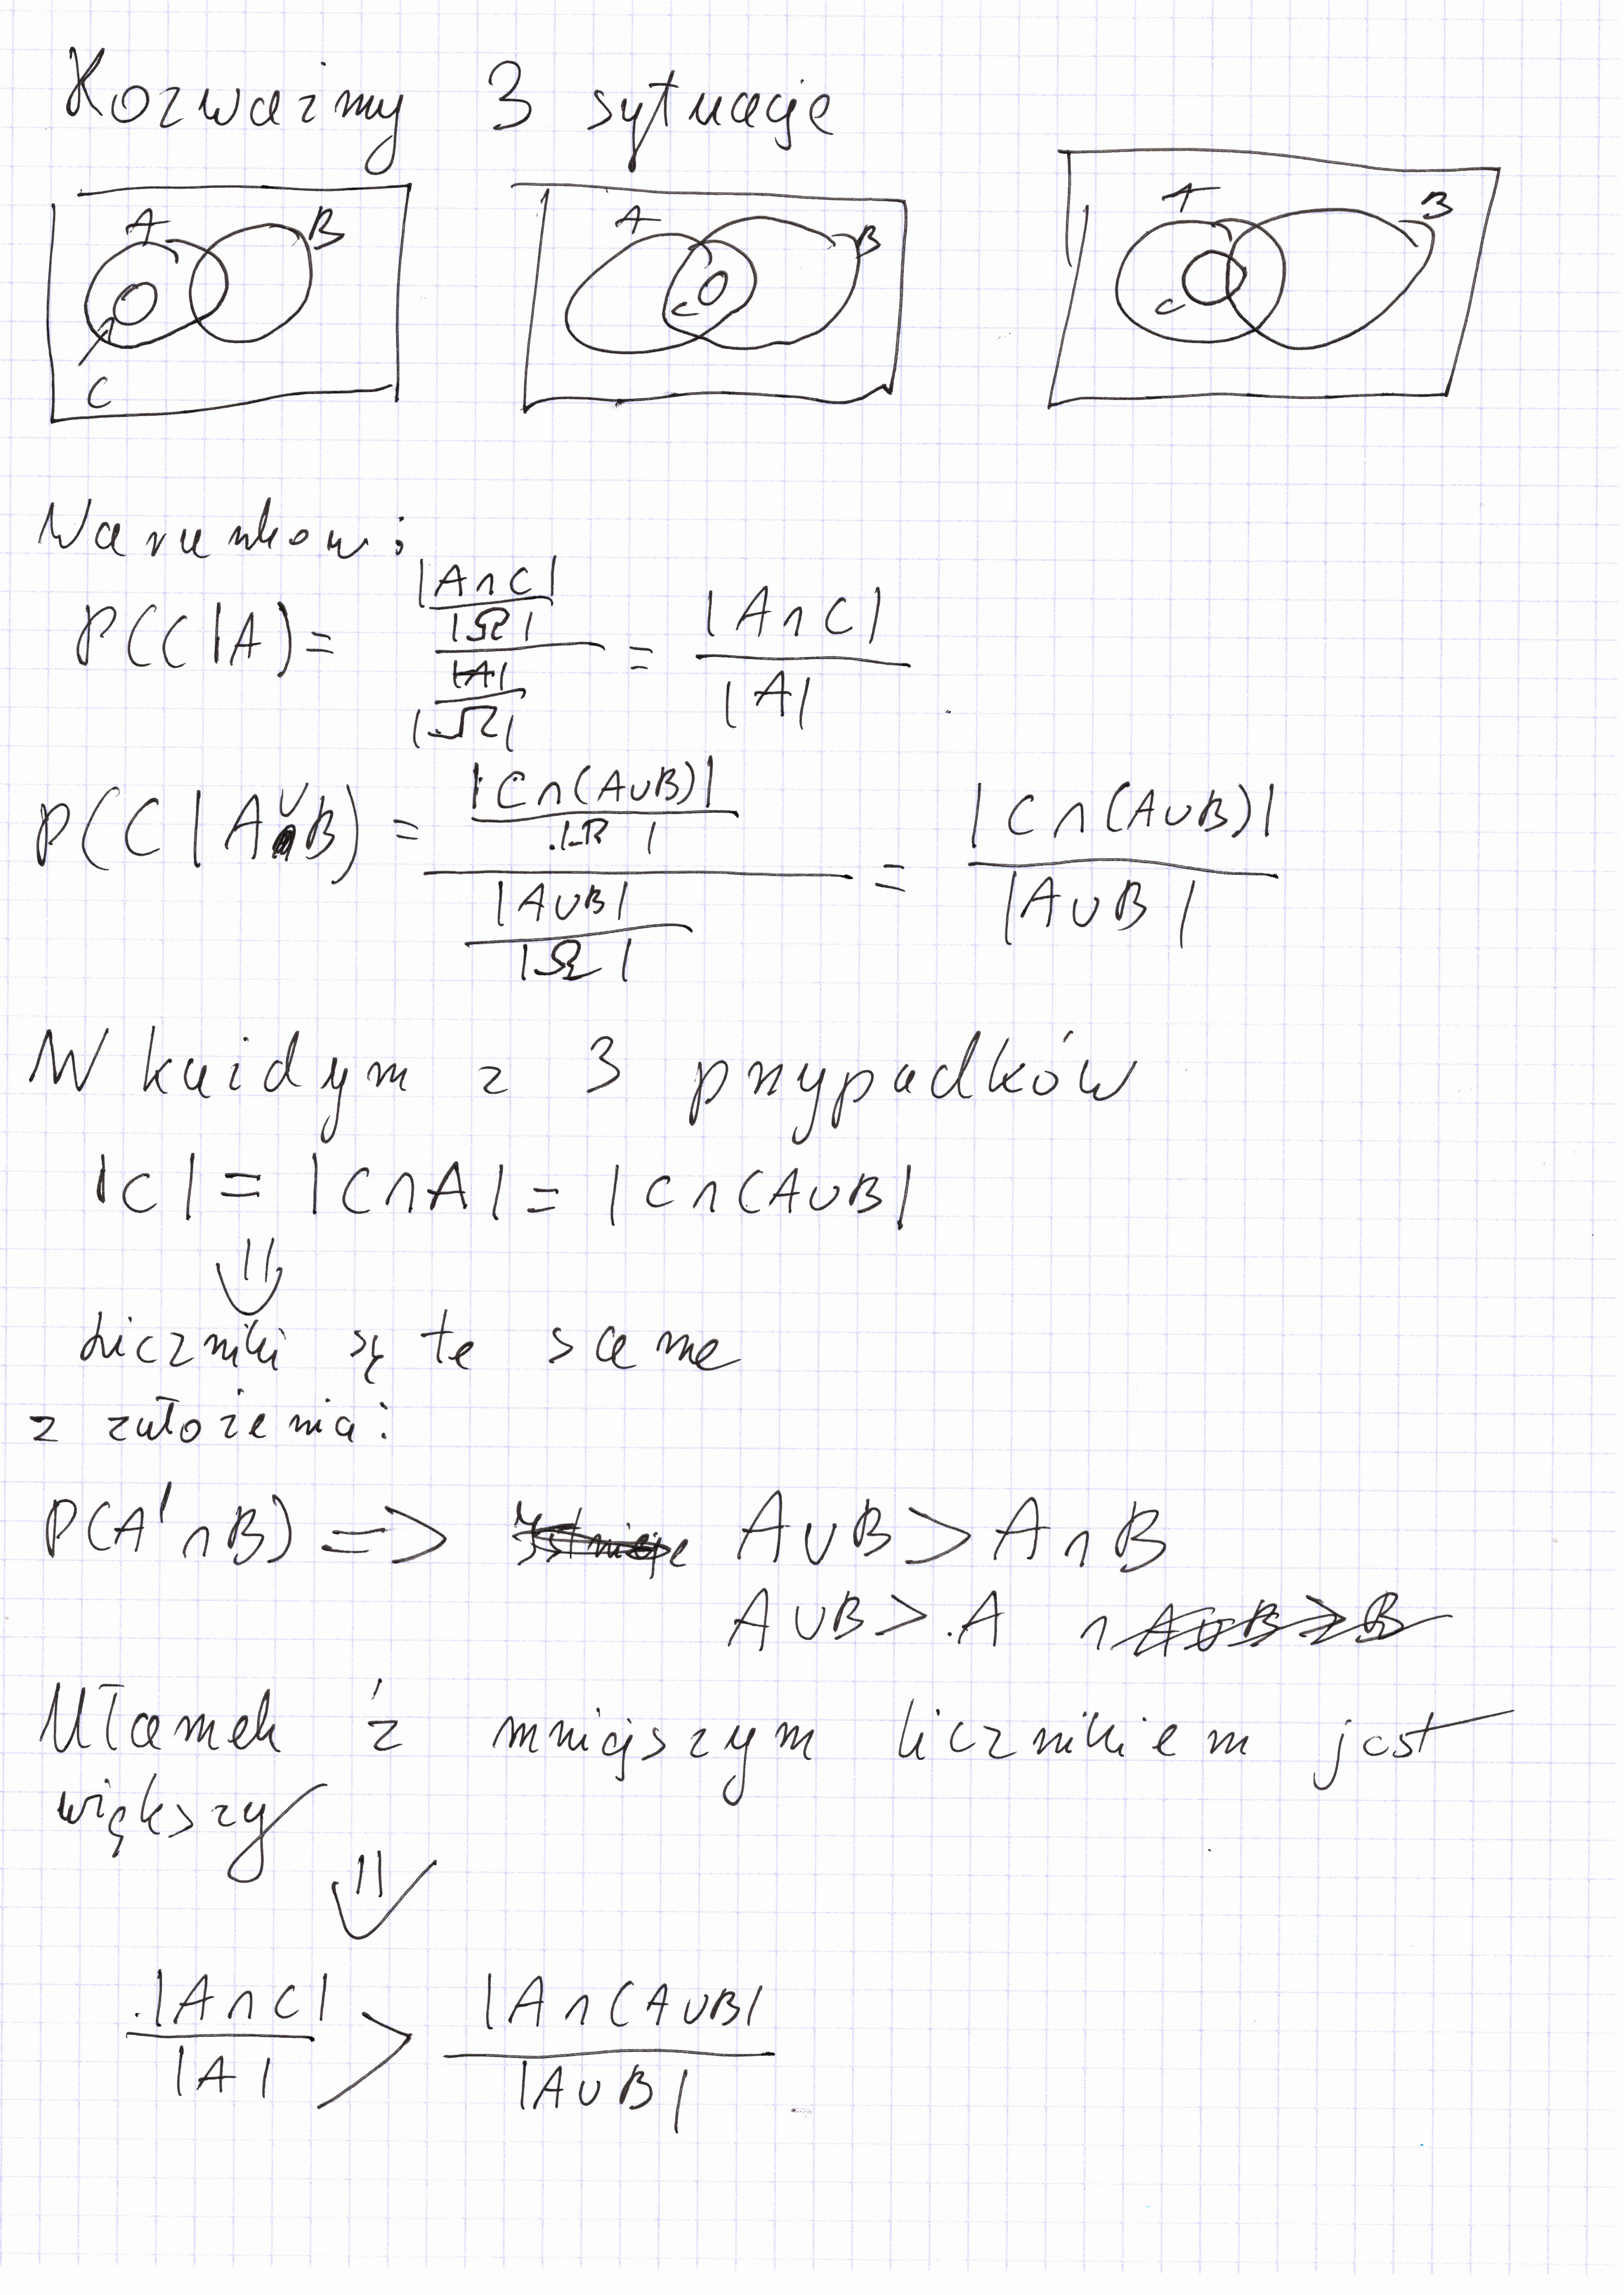 Rozważmy 3 sytuacje
A B C
A B C
A B C
Warunkow:
P(C|A) = \frac{\frac{|A∩C|}{|Ω|}}{\frac{|A|}{|Ω|}} = \frac{|A∩C|}{|A|}
P(C|A∪B) = \frac{\frac{|C∩(A∪B)|}{|Ω|}}{\frac{|A∪B|}{|Ω|}} = \frac{|C∩(A∪B)|}{|A∪B|}
W każdym z 3 przypadków
|C| = |C∩A| = |C∩(A∪B|
⇓
Liczniki są te same
z założenia:
P(A'∩B) => A∪B > A∩B
A∪B > A ∩
Ułamek z mniejszym licznikiem jest
większy
⇓
\frac{|A∩C|}{|A|} > \frac{|A∩(A∪B|}{|A∪B|}